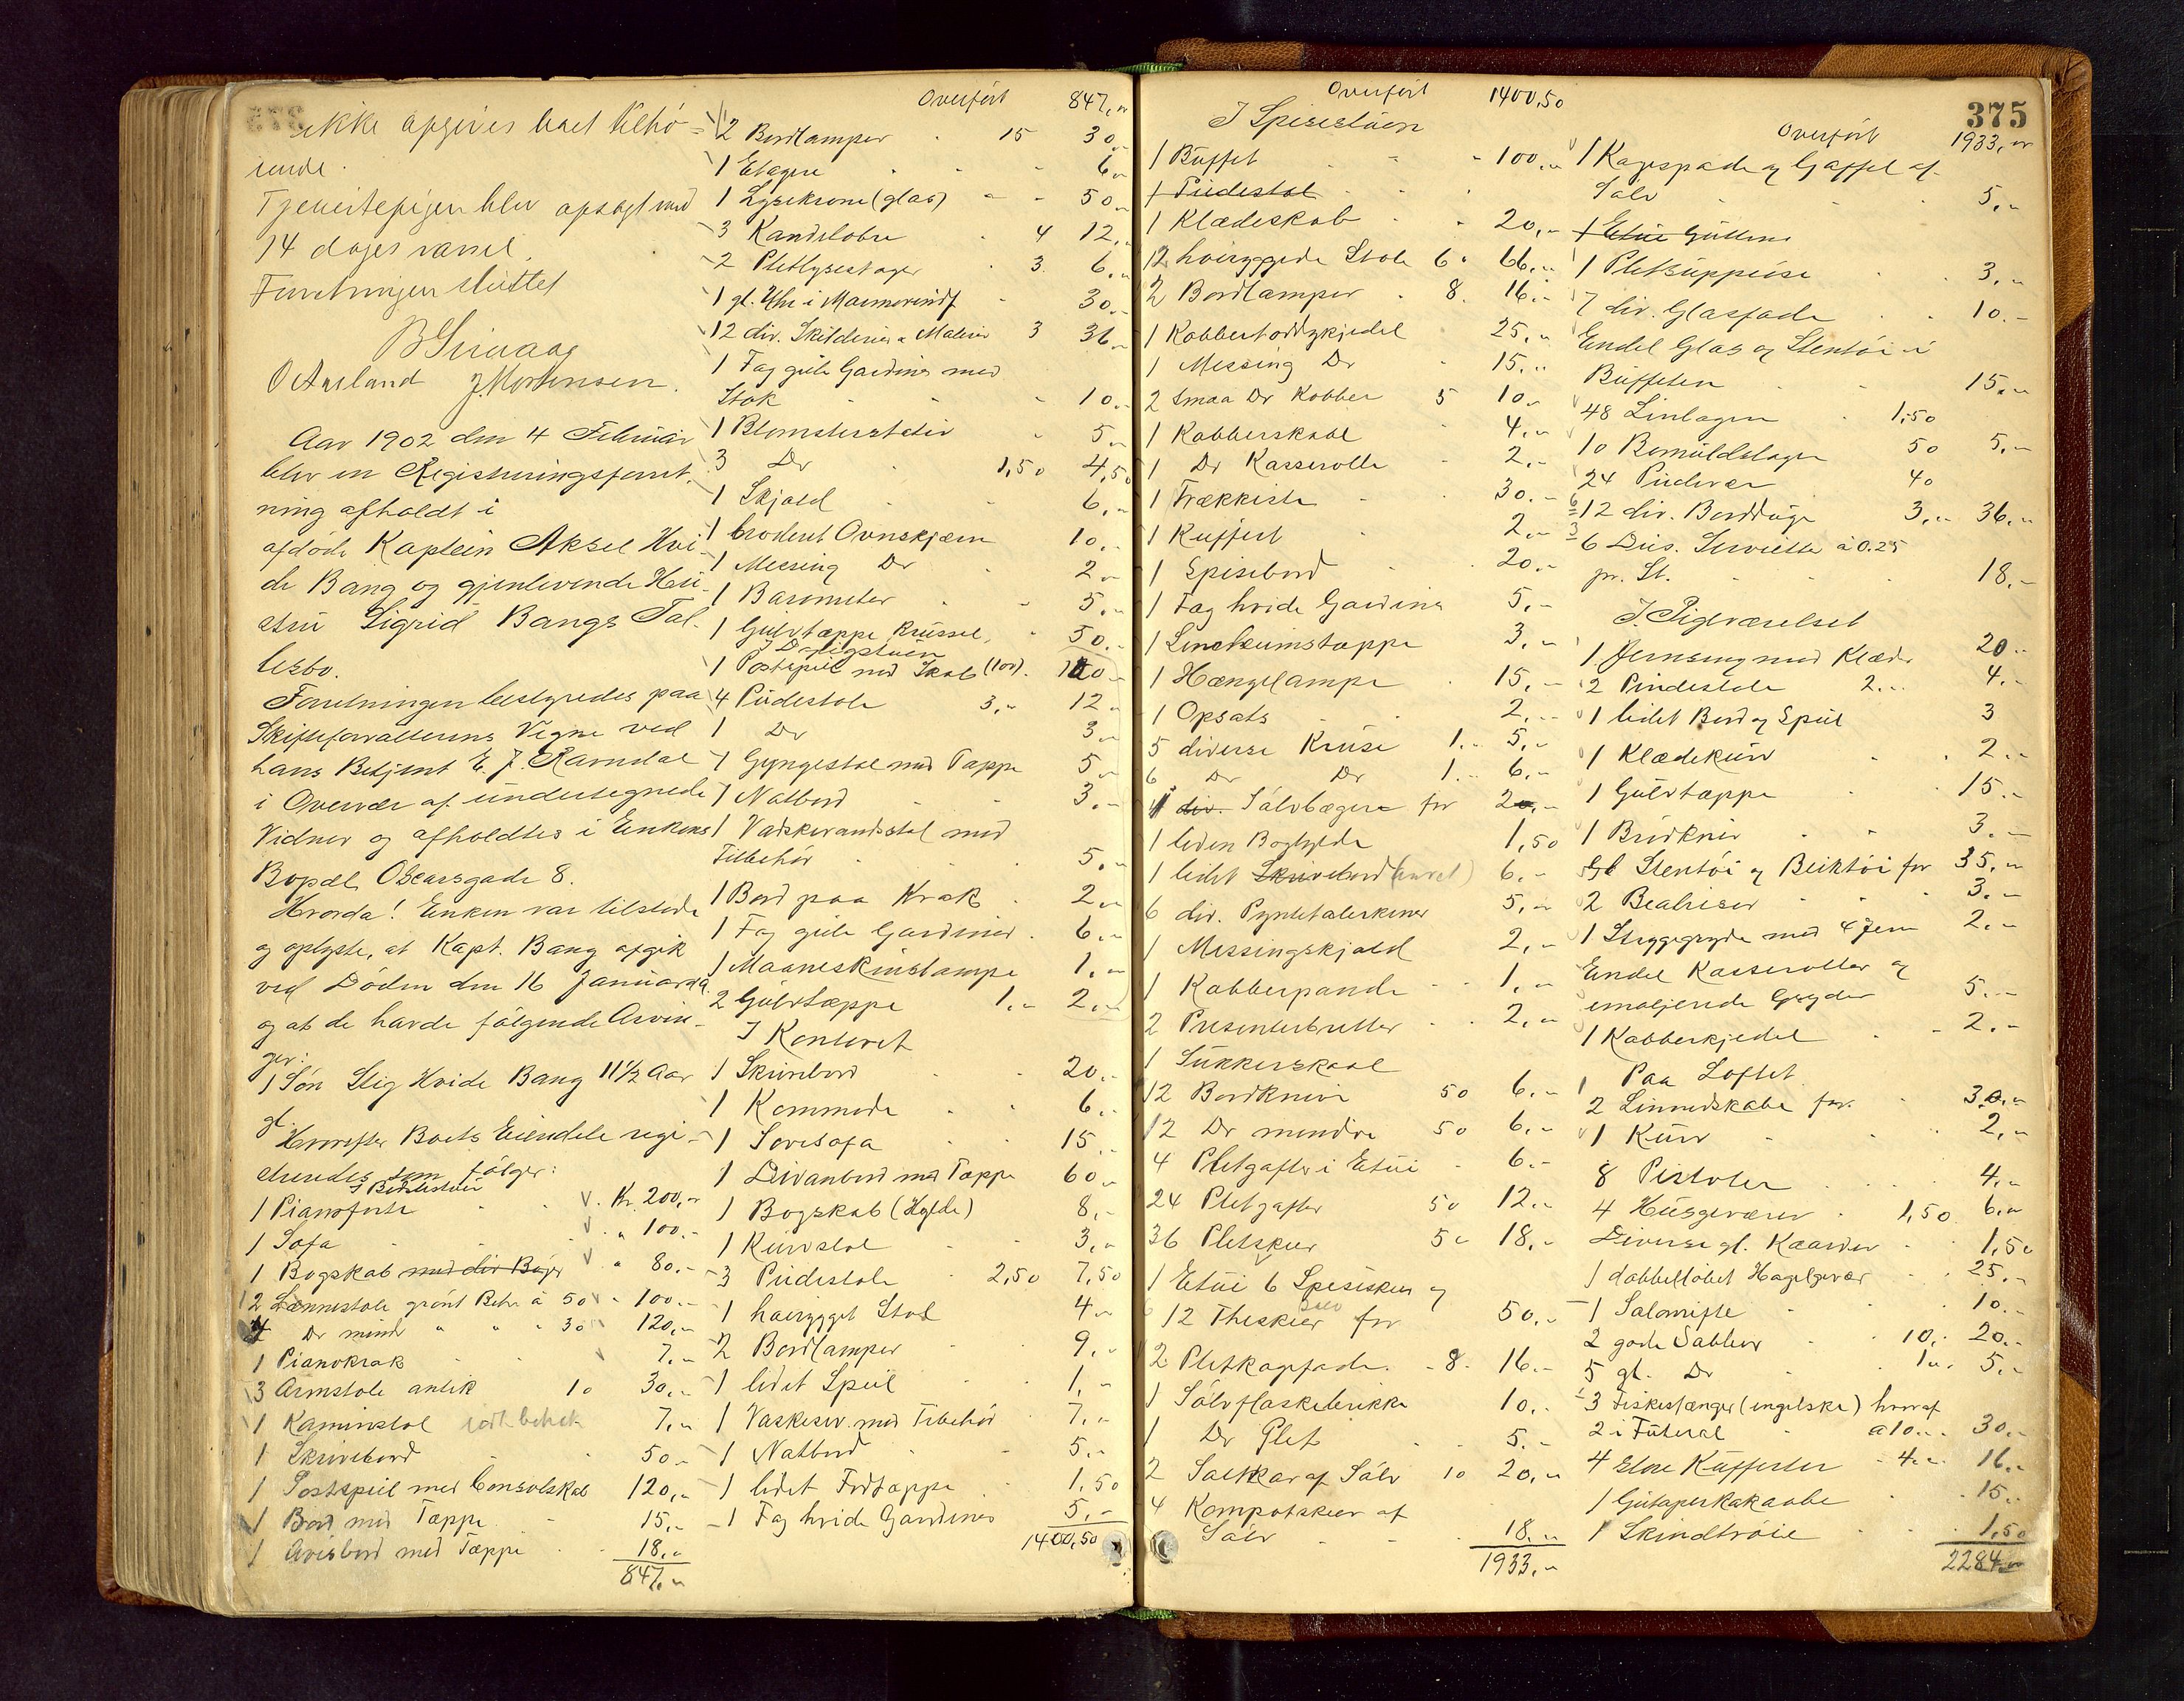 ikke opgives boet tilhø-
rende.
Tjenestepigen blev opsagt med
14 dages varsel.
Forretningen sluttet
O Aarland J. Mortensen.
Aar 1902 den 4 Februar
blev en Registreringsforret-
ning afholdt i
afdøde Kaptein Aksel Hvi-
de Bang og gjenlevende Hu-
stru Sigrid Bangs Fal-
lesbo.
Forretningen bestyredes paa
Skifteforvalterens Vegne ved
hans Betjent E. J. Ramdal
i Overvær af undertegnede
Vidner og afholdtes i Enkens
Bopæl, Oscarsgade 8.
Hvorda! Enken var tilstede
og oplyste, at Kapt. Bang afgik
ved Døden den 16 Januar d.a.
og at de havde følgende Arvin-
ger:
1 Søn Stig Hvide Bang 11½ Aar
gl.
Hvorefter Boets Eiendele regi-
streredes som følger:
I Bedstestuen
1 Pianoforte Kr. 200,-
1 Sofa " 100.-
1 Bogskab med div Bøger " 80.-
2 Lænestole grønt Betr. à 50 - 100.-
4 Do mindre " " " 30 120,-
1 Pianokrak 7,-
3 Armstole antik 10 30,-
1 Kaminstol rødt betræk 7,-
1 Skrivebord 50,-
1 Postspeil med Consolskab 120,-
1 Bord med Tæppe 15,-
1 Avisbord med Tæppe 18,-
847,-
Overført 847,-
2 Bordlamper 15 30,-
1 Etagere 6,-
1 Lysekrone (glas) 50,-
3 Kandelabre 4 12,-
2 Pletlysestager 3 6,-
1 gl. Uhr i Marmorindf. 30,-
12 div. Skilderier & Malerier 3 36,-
1 Fag gule Gardiner med
Stok 10,-
1 Blomsterstativ 5,-
3 Do 1,50 4,50
1 Skjold 6,-
1 broderet Ovnskjærm 10,-
1 Messing Do 2,-
1 Barometer 5,-
1 Gulvtæppe Brüssel, 50,-
I Dagligstuen
1 Postspeil med Skab (100). 100,-
4 Pudestole 3,- 12,-
1 Do 3,-
1 Gyngestol med Tæppe 5,-
1 Natbord 3,-
1 Vadskevandsstel med
Tilbehør 5,-
1 Bord paa Krak 2,-
1 Fag gule Gardiner 6,-
1 Maaneskinslampe 1,-
2 Gulvtæppe 1.- 2,-
I Kontoret
1 Skrivebord 20.-
1 Kommode 6.-
1 Sovesofa 15.-
1 Divanbord med Tæppe 60,-
1 Bogskab (Hylde) 8,-
1 Kurvstol 3,-
3 Pudestole 2,50 7,50
1 høirygget Stol 4,-
2 Bordlamper 9,-
1 lidet Speil 1,-
1 Vaskeserv. med Tilbehør 7,-
1 Natbord 5.-
1 lidet Fodtæppe 1,50
1 Fag hvide Gardiner 5,-
1400,50
Overført 1400,50
I Spisestuen
1 Buffet 100,-
1 Pudestol
1 Klædeskab 20,-
12 høiryggede Stole 6. 66,-
2 Bordlamper 8. 16.-
1 Kobbertoddykjedel 25,-
1 Messing Do 15,-
2 smaa Do Kobber 5 10,-
1 Kobberskaal 4,-
1 Do Kasserolle 2,-
1 Trækkiste 30.-
1 Kuffert 2,-
1 Spisebord 20.-
1 Fag hvide Gardiner 5,-
1 Linoleumstæppe 3,-
1 Hængelampe 15,-
1 Opsats 2,-
5 diverse Kruse 1.- 5,-
6 Do Do 1.- 6,-
1 div. Sølvbægere for 20,-
1 liden Boghylde 1,50
1 lidet Skrivebord (Enret) 6,-
6 div. Pyntetalerkener 5,-
1 Messingskjold 2,-
1 Kobberpande 1,-
2 Presenterbretter 2,-
1 Sukkerskaal
12 Bordknive 50 6,-
12 Do mindre 50 6,-
4 Pletgafler i Etui 6.-
24 Pletgafler 50 12,-
36 Pletskeer 50 18,-
1 Etui 6 Spiseskeer og
12 Theskeer sølv for 50,-
2 Pletkagefade 8. 16.-
1 Sølvflaskebrikke 10.-
1 Do Plet 5.-
2 Saltkar af Sølv 10 20,-
4 Kompotskeer af
Sølv 18,-
1933,-
375
Overført 1933,-
1 Kagespade og Gaffel af
Sølv 5,-
1 Etui Gullens
1 Pletsuppeøse 3,-
7 div. Glasfade 10.-
Endel Glas og Stentøi i
Buffeten 15,-
48 Linlagen 1,50
10 Bomuldslagen 50 5,-
24 Pudevar 40
12 div. Bordduge 3,- 36,-
6 Dus. Servietter à 0.25
pr. St. 18,-
I Pigeværelset
1 Jernseng med Klæder 20.-
2 Pindestole 2.- 4.-
1 lidet Bord og Speil 3
1 Klædekurv 2.-
1 Gulvtæppe 15.-
1 Brødkniv 3.-
Gl Stentøi og Bliktøi for 35,-
2 Bealiser 3.-
1 Strygegryde med 4 Jern 2.-
Endel Kasseroller og
emaljerede Gryder 5.-
1 Kobberkjedel 2.-
Paa Loftet
2 Linnedskabe for 30,-
1 Kurv 2,-
8 Pistoler 4,-
4 Husgeværer 1,50 6,-
Diverse gl. Kaarder 1,50
1 dobbelløbet Haglgevær 25,-
1 Salonrifle 10.-
2 gode Sabler 10.- 20.-
5 gl. Do 1,- 5.-
3 Fiskestænger (engelske) hvoraf
2 i Futeral a 10.- 30.-
4 store Kufferter 4.- 16.-
1 Gutaperkakaabe 15.-
1 Skindtrøie 1,50
2284,-